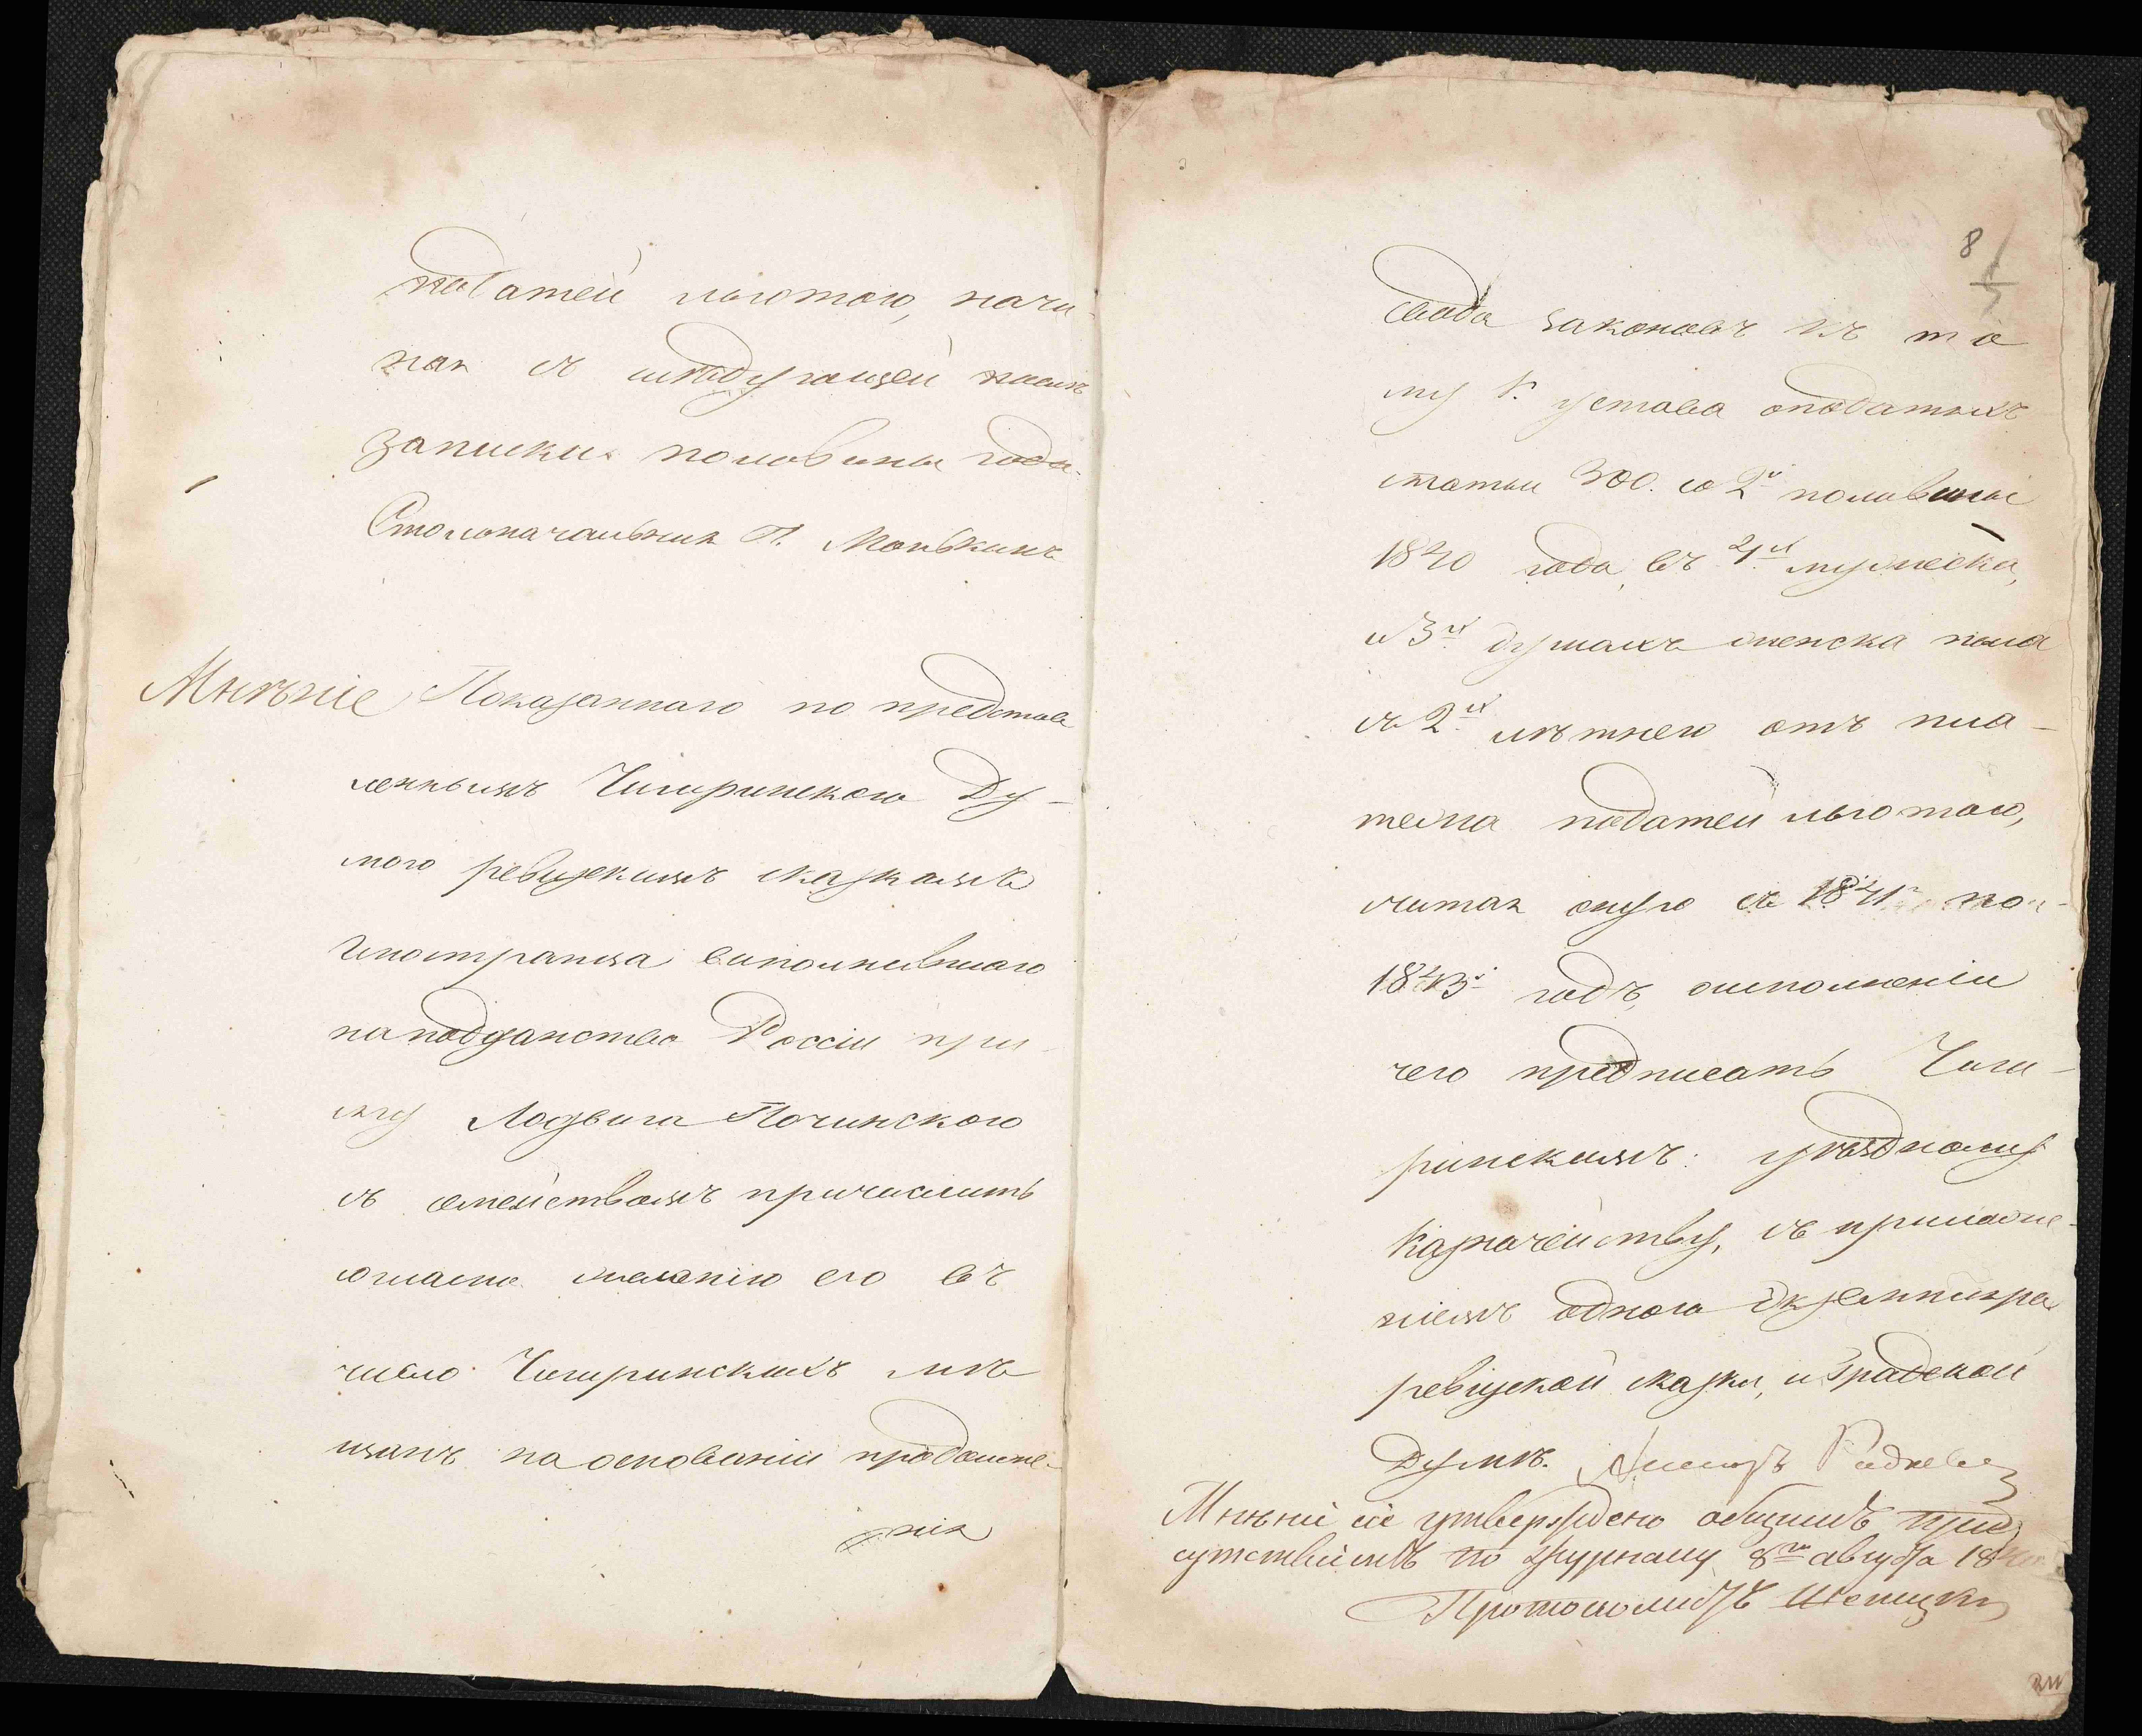 податей льготою, начи-
ная съ слѣдующей послѣ
записки половины года.
Столоначальникъ П. Монькинъ
Мнѣніе Показаннаго по представ
леннымъ Чигиринскою Ду-
мою ревизскимъ сказкамъ
иностранца выполнившаго
на подданство Россіи при
сягу Лодвига Починского
съ семействомъ причислить
согласно желанію его въ
число Чигиринскихъ мѣ
щанъ на основаніи продолже-
нія
8
свода законовъ къ то
му V. устава о податяхъ
статьи 300. со 2й половины
1840 года, въ 4хъ мужеска,
и 3хъ душахъ женска пола
съ 2хъ лѣтнею отъ пла-
тежа податей льготою,
считая оную съ 1841го по-
1843й годъ, о исполненіи
чего предписать Чиги-
ринскимъ: уѣздному
Казначейству, съ приложе-
ніемъ одного экземпляра
ревизской сказки, и Градской
Думѣ. Ассесоръ
Мнѣніе сіе утверждено общимъ при
сутствіемъ по журналу 8го августа 18
Протоколистъ